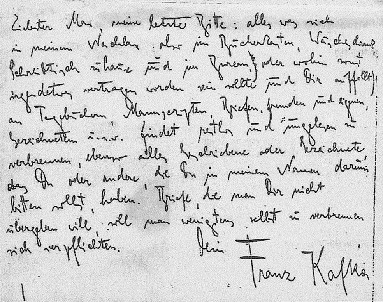 Liebster Max, meine letzte Bitte: alles was sich
in meinem Nachlass also im Bücherkasten, Wäscheschrank,
Schreibtisch zuhause und im Bureau, oder wohin sonst
irgendetwas vertragen worden sein sollte und Dir auffällt,
an Tagebüchern, Manuscripten, Briefen, fremden und eigenen,
Gezeichnetem u.s.w. findet restlos und ungelesen zu
verbrennen, ebenso alles Geschriebene oder Gezeichnete,
das Du oder andre, die Du in meinem Namen darum
bitten sollst, haben. Briefe, die man Dir nicht
übergeben will, soll man wenigstens selbst zu verbrennen
sich verpflichten.
Dein
Franz Kafka